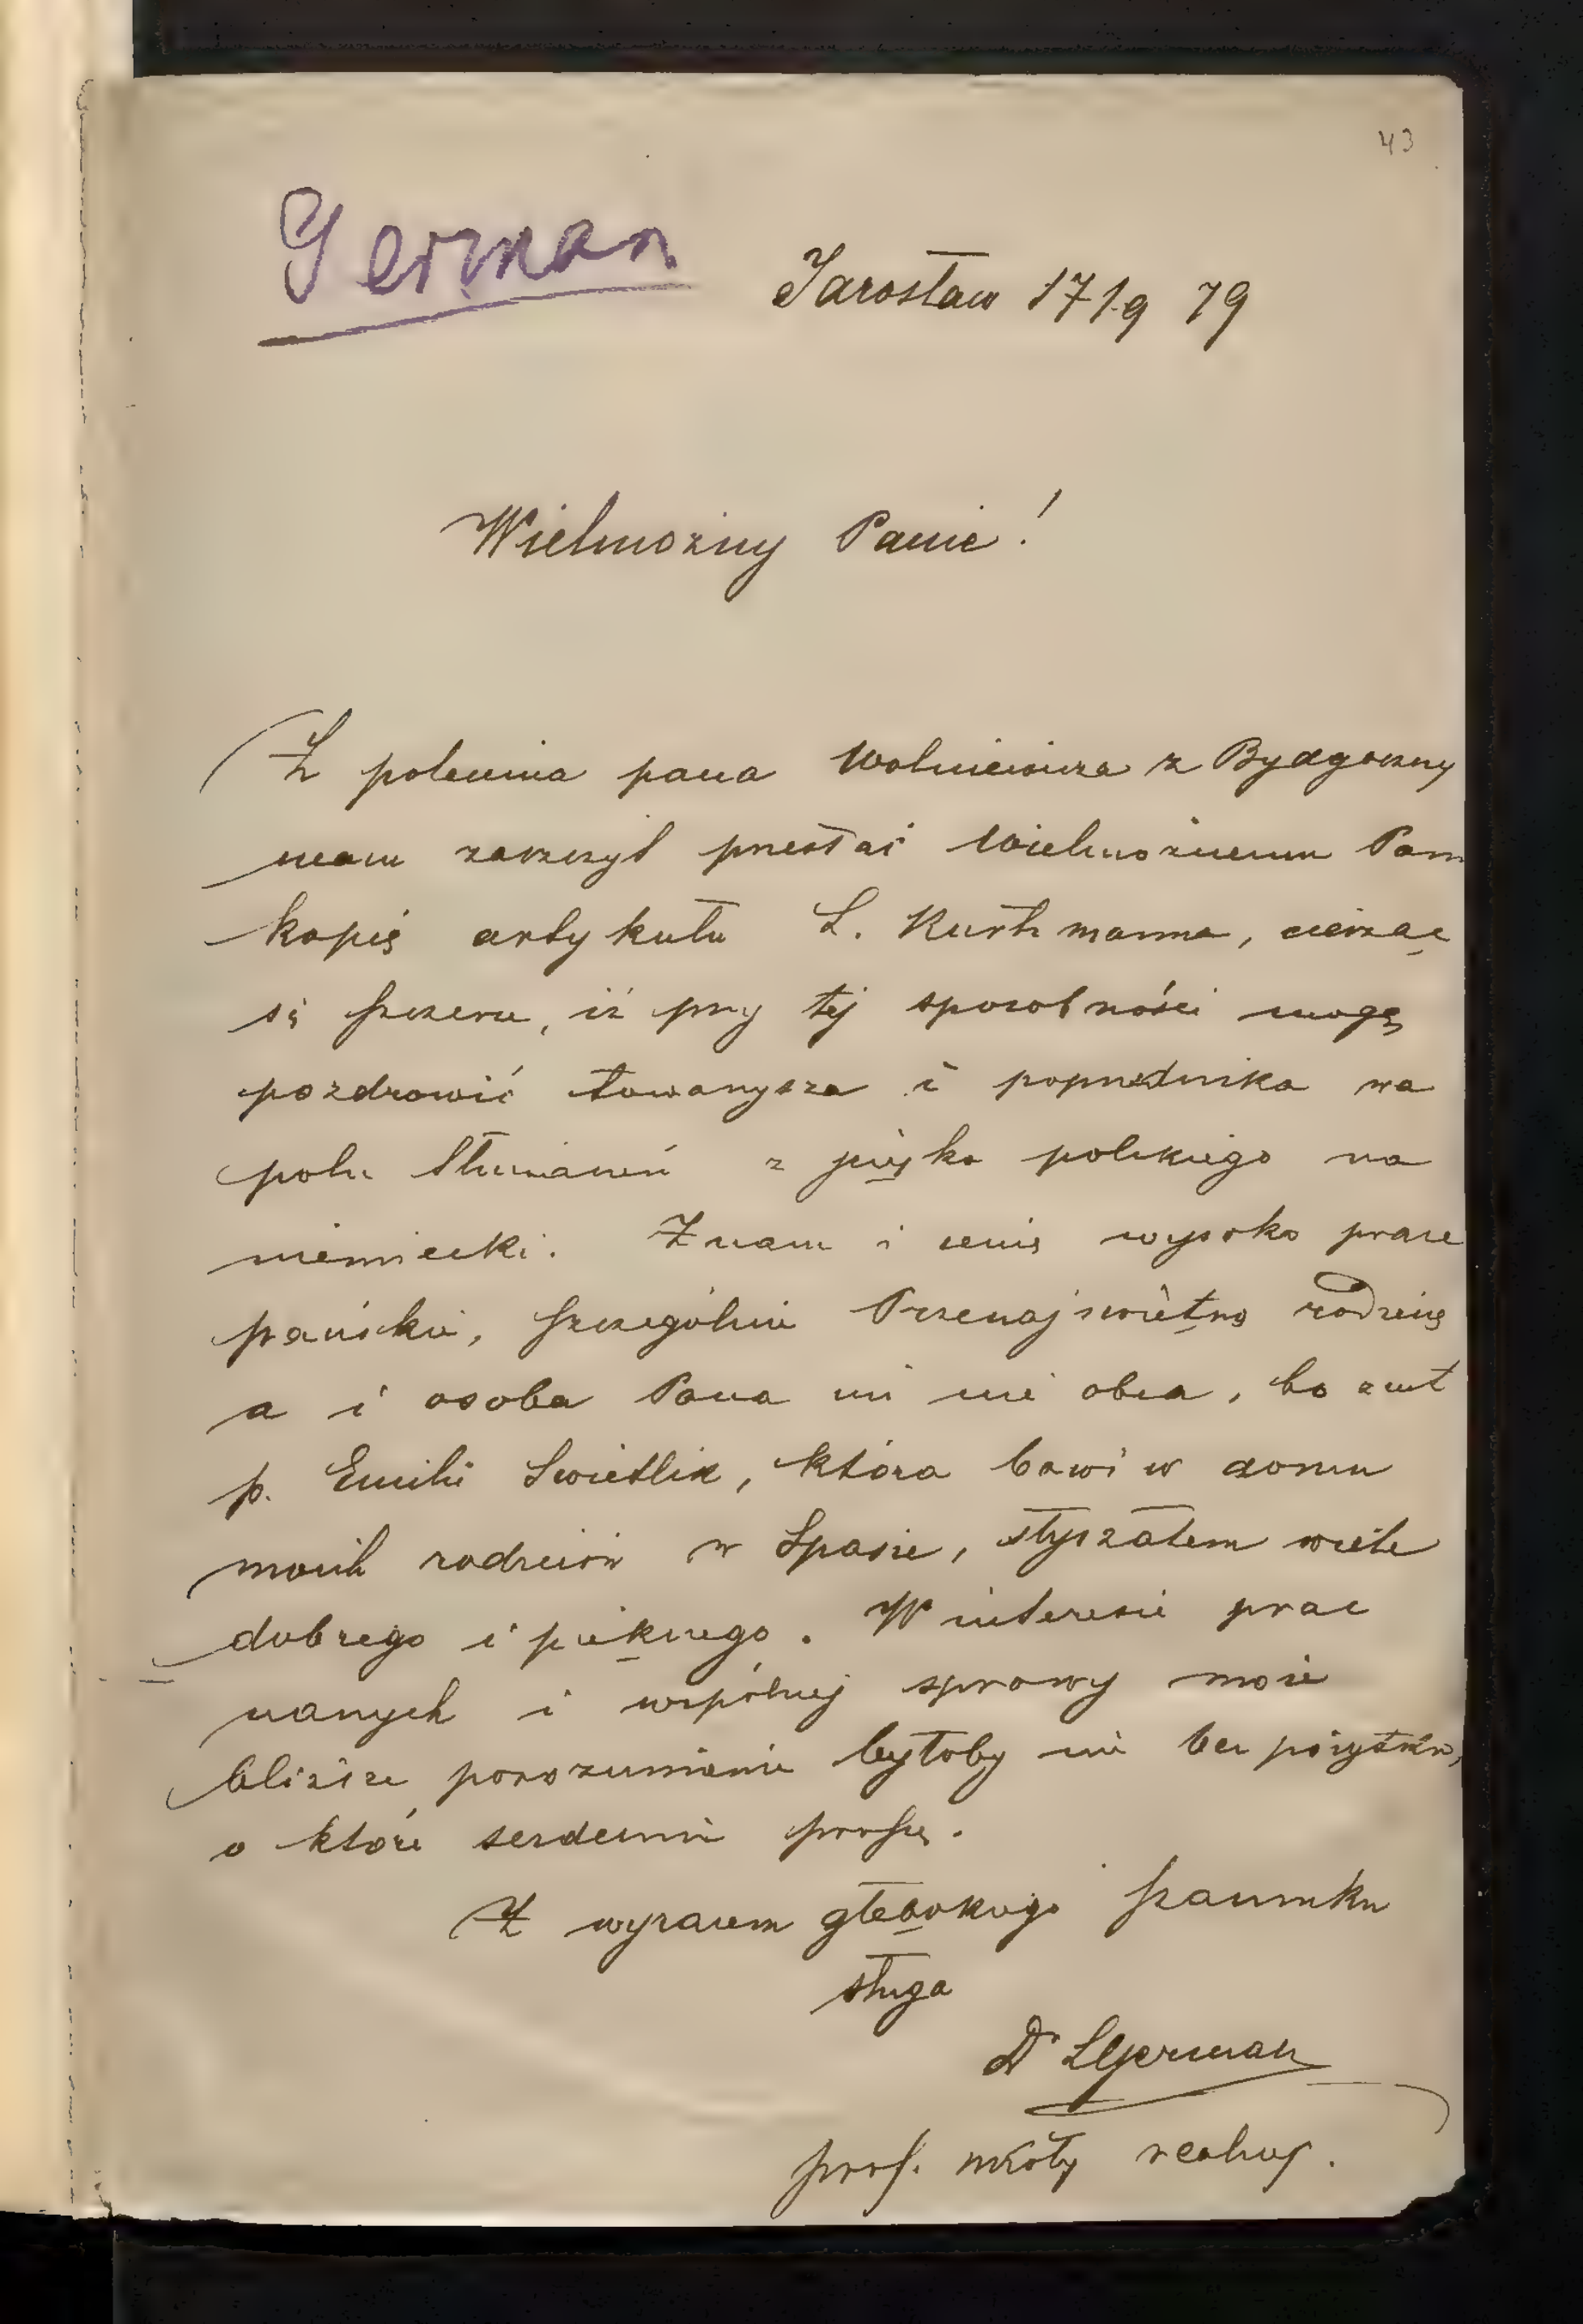 43
German
Jarosław 17/9 79
Wielmożny Panie!
Z polecenia pana Wolniewicza z Bydgoszczy
mam zaszczyt przesłać Wielmożnemu Panu
kopię artykułu L. Kurtzmanna, ciesząc
się szczerze, iż przy tej sposobności mogę
pozdrowić towarzysza i poprzednika na
polu tłumaczeń z języka polskiego na
niemiecki. Znam i cenię wysoko prace
pańskie, szczególnie Przenajświętną rodzinę
a i osoba Pana mi nie obca, bo z ust
p. Emilii Swietlik, która bawi w domu
moich rodziców w Spasie, słyszałem wiele
dobrego i pięknego. W interesie prac
naszych i wspólnej sprawy może
bliższe porozumienie byłoby nie bez pożytku,
o które serdecznie proszę.
Z wyrazem głębokiego szacunku
sługa
Dr LGerman
prof. szkoły realnej.